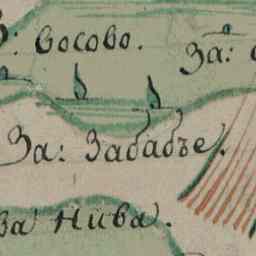 : Восово.
За:
За: Забабъе.
За Нива.